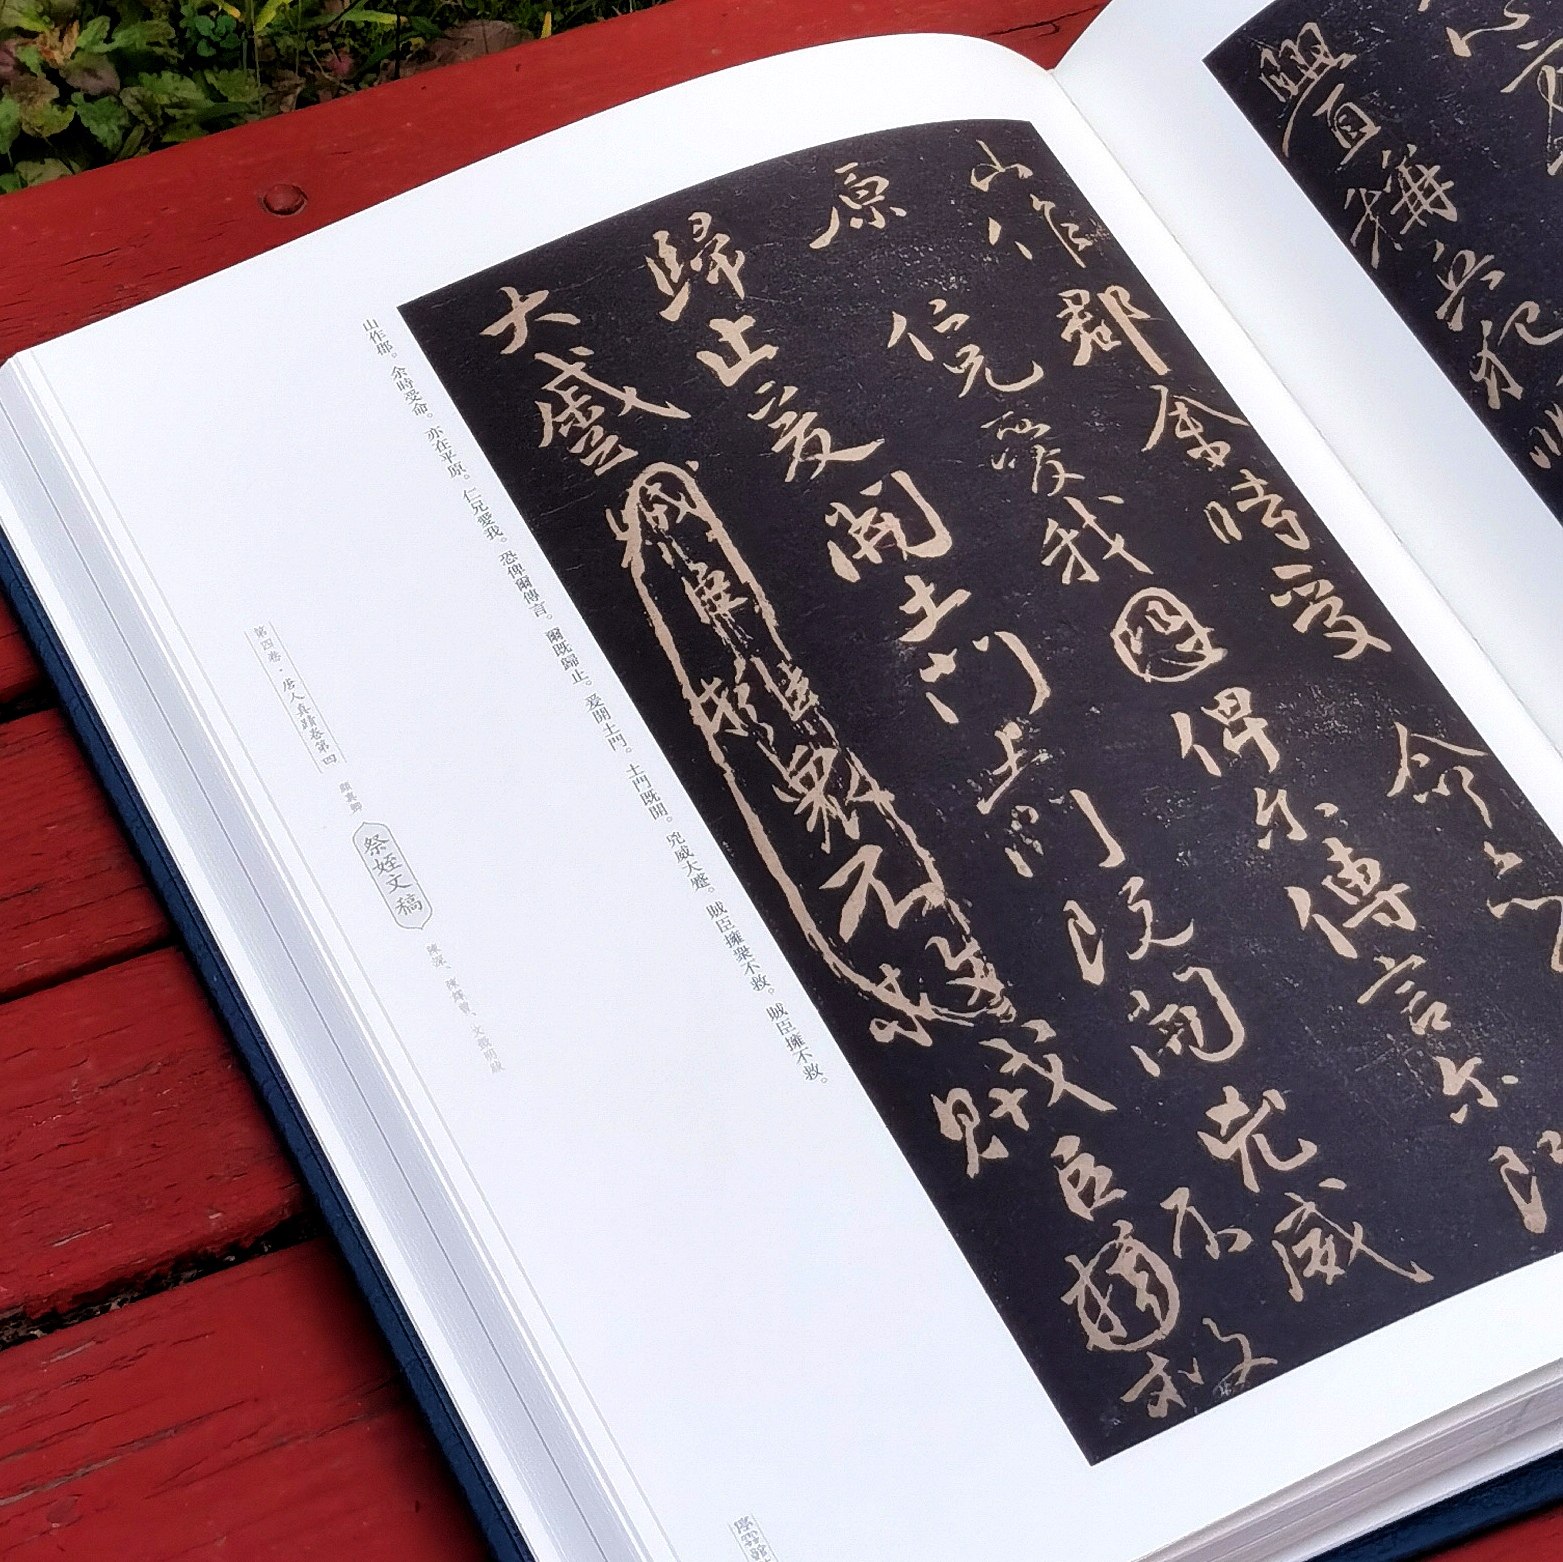 釁稱兵犯
山作郡余時受命亦
原仁兄愛我恐俾尔傳言尔既
歸止爰開土門土門既開兇威
大蹙賊臣擁衆不救賊臣擁不救
山作郡。余時受命。亦在平原。仁兄愛我。恐俾爾傳言。爾既歸止。爰開土門。土門既開。兇威大蹙。賊臣擁衆不救。賊臣擁不救。
第四卷·唐人真蹟卷第四
顏真卿
祭姪文稿
陳深、陳繹曾、文徵明跋